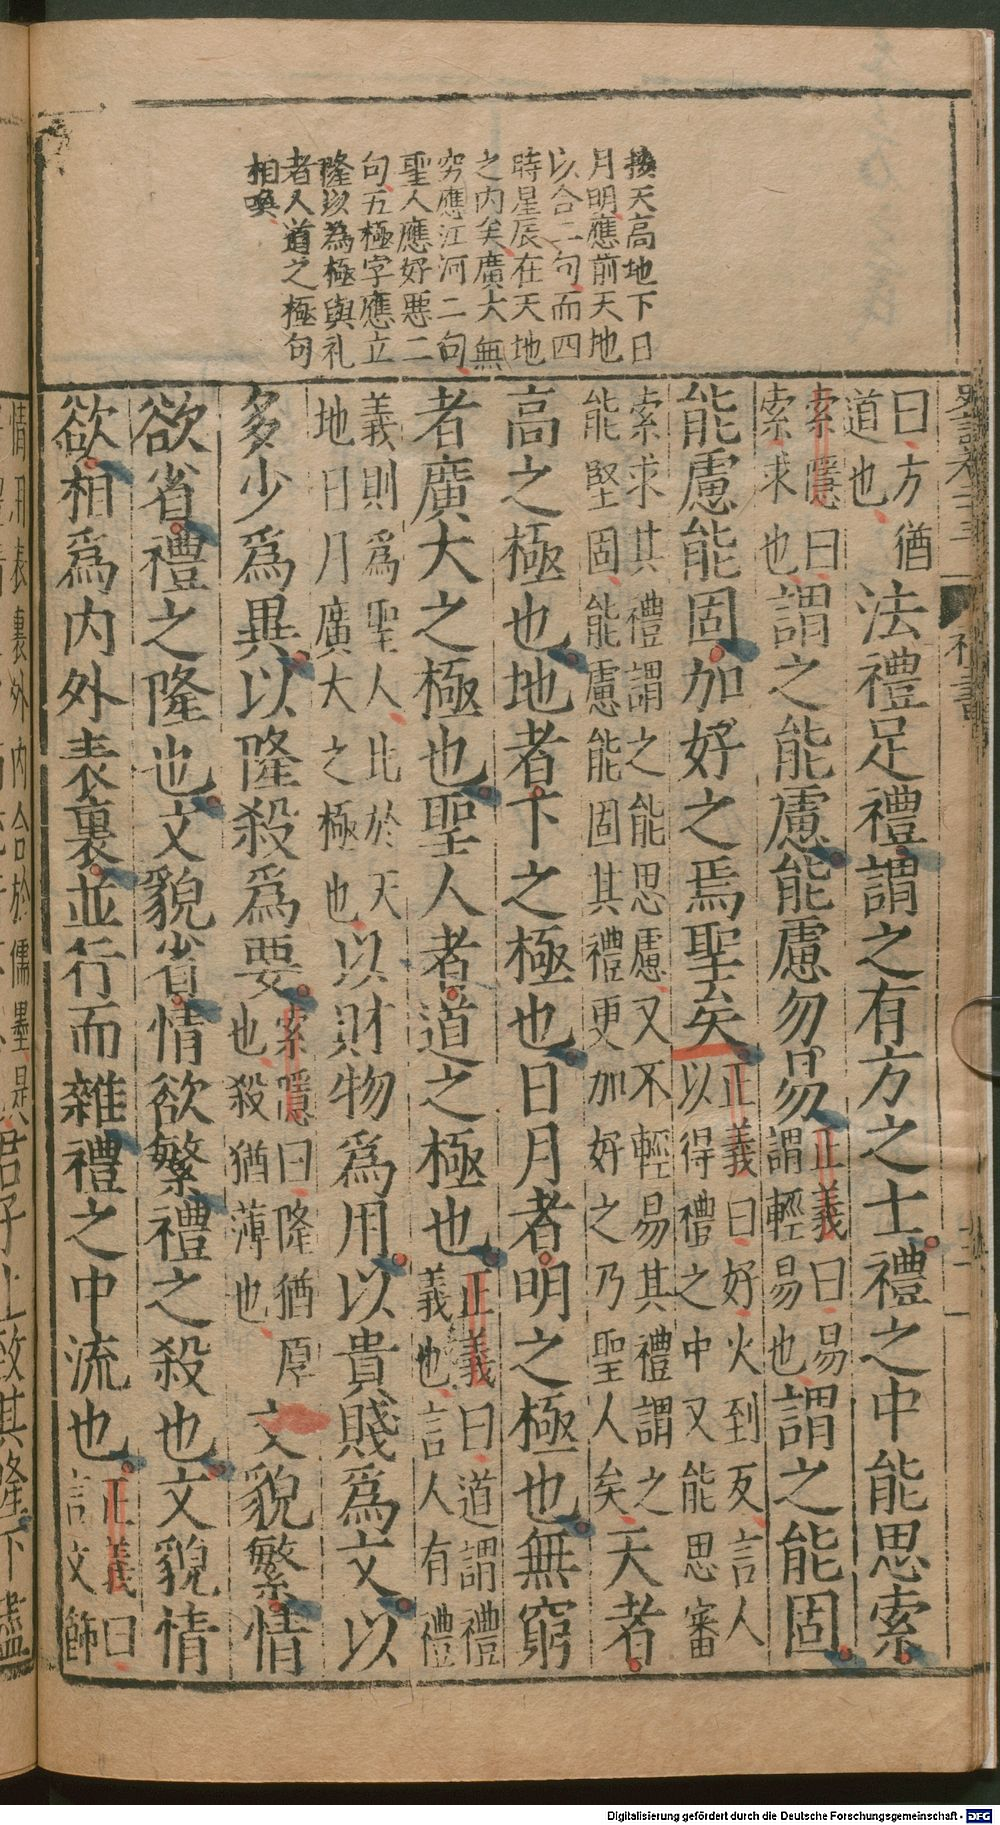 按天高地下日
月明應前天地
以合二句而四
時星辰在天地
之内矣廣大無
窮應江河二句
聖人應好惡二
句五極字應立
隆以為極與礼
者人道之極句
相喚
禮書
曰方猶
道也
法禮足禮謂之有方之士禮之中能思索
索隱曰
索求也
謂之能慮能慮勿易
正義曰易
謂輕易也
謂之能固
能慮能固加好之焉聖矣
正義曰好火到反言人
以得禮之中又能思審
索求其禮謂之能思慮又不輕易其禮謂之
能堅固能慮能固其禮更加好之乃聖人矣
天者
高之極也地者下之極也日月者明之極也無窮
者廣大之極也聖人者道之極也
正義曰道謂禮
義也言人有禮
義則為聖人比於天
地日月廣大之極也
以財物爲用以貴賤爲文以
多少爲異以隆殺爲要
索隱曰隆猶厚
也殺猶薄也
文貌繁情
欲省禮之隆也文貌省情欲繁禮之殺也文貌情
欲相爲内外表裏並行而雜禮之中流也
正義曰
言文飾
情用表裏外内合於儒墨是君子上致其隆下盡
Digitalisierung gefördert durch die Deutsche Forschungsgemeinschaft - DFG